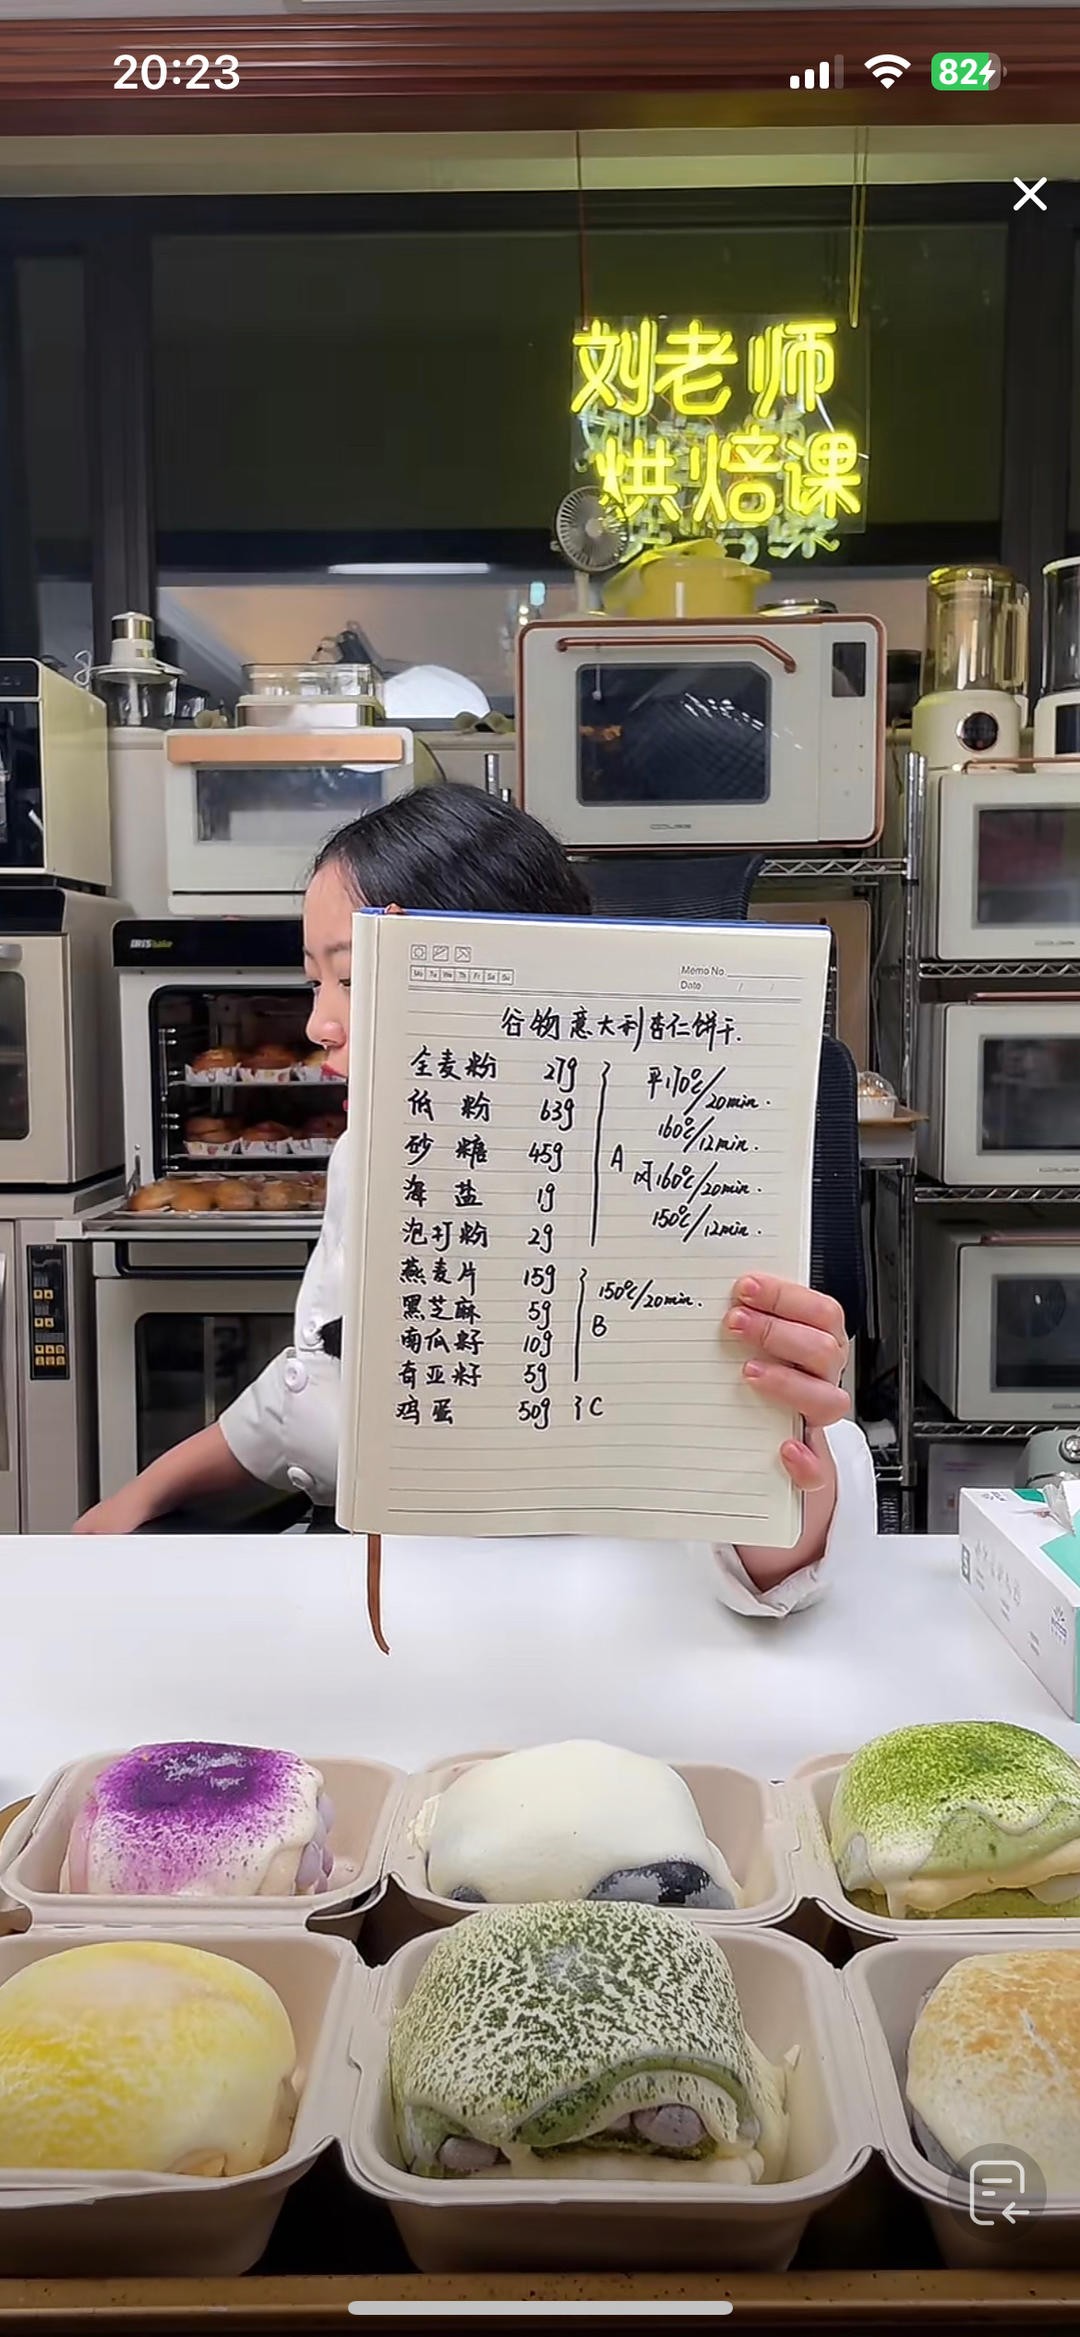 20:23
82
刘老师
烘焙课
IRISbake
Mo Tu We Th Fr Sa Su
Memo No.
Date / /
谷物意大利杏仁饼干.
全麦粉 27g
低粉 63g
砂糖 45g
海盐 1g
泡打粉 2g
A
平170℃/20min.
160℃/12min.
风160℃/20min.
150℃/12min.
燕麦片 15g
黑芝麻 5g
南瓜籽 10g
奇亚籽 5g
150℃/20min.
B
鸡蛋 50g
C